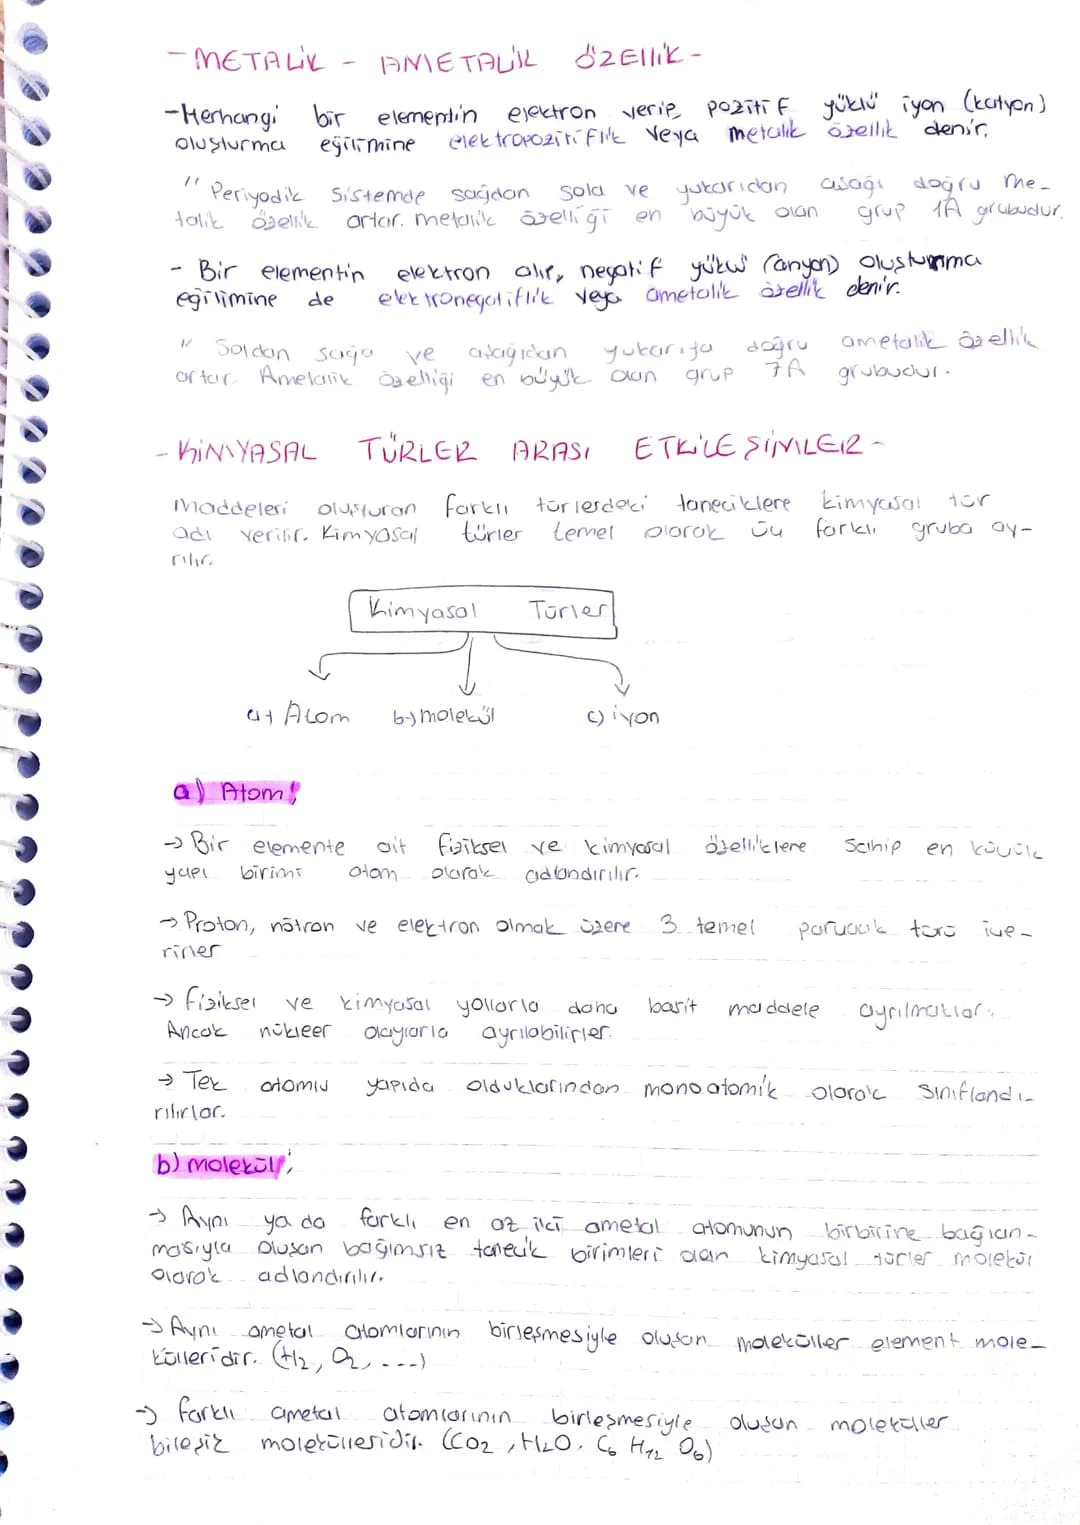 - METALİK - AMETALİK ÖZELLİK -
- Herhangi bir elementin elektron verip pozitif yüklü iyon (katyon)
oluşturma eğilimine elektropozitiflik veya metalik özellik denir.
" Periyodik sistemde sağdan sola ve yukarıdan aşağı doğru me-
talik özellik artar. metalik özelliği en büyük olan grup 1A grubudur.
- Bir elementin elektron alıp, negatif yüklü (anyon) oluşturma
eğilimine de elektronegatiflik veya ametalik özellik denir.
" Soldan sağa ve aşağıdan yukarıya doğru ametalik özellik
artar. Ametalik özelliği en büyük olan grup 7A grubudur.
- KİMYASAL TÜRLER ARASI ETKİLEŞİMLER -
Maddeleri oluşturan farklı türlerdeki taneciklere kimyasal tür
adı verilir. Kimyasal türler temel olarak üç farklı gruba ay-
rılır.
Kimyasal Türler
a) Atom b-) molekül c) iyon
a) Atom;
→ Bir elemente ait fiziksel ve kimyasal özelliklere sahip en küçük
yapı birimi atom olarak adlandırılır.
→ Proton, nötron ve elektron olmak üzere 3 temel parçacık türü içe-
rirler
→ fiziksel ve kimyasal yollarla daha basit maddele ayrılmazlar.
Ancak nükleer olaylarla ayrılabilirler.
→ Tek atomlu yapıda olduklarından monoatomik olarak sınıflandı-
rılırlar.
b) molekül;
→ Aynı ya da farklı en az iki ametal atomunun birbirine bağlan-
masıyla oluşan bağımsız tanecik birimleri olan kimyasal türler molekül
olarak adlandırılır.
→ Aynı ametal atomlarının birleşmesiyle oluşan moleküller element mole-
külleridir. (H2, O2, ----)
→ farklı ametal atomlarının birleşmesiyle oluşan moleküller
bileşik molekülleridir. (CO2, H2O, C6 H12 O6)